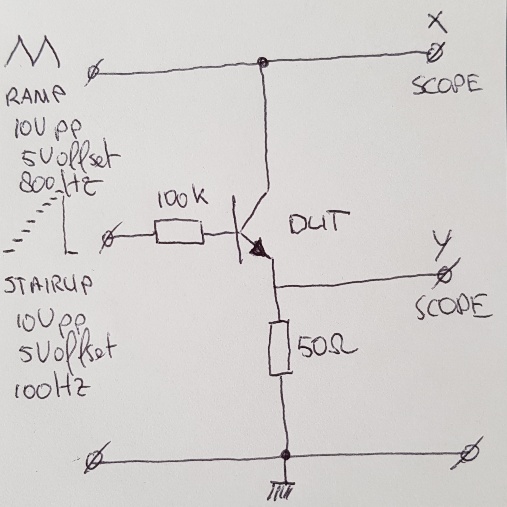 X
SCOPE
RAMP
10V pp
5V offset
800Hz
100k
DUT
Y
SCOPE
STAIRUP
10V pp
5V offset
100Hz
50Ω